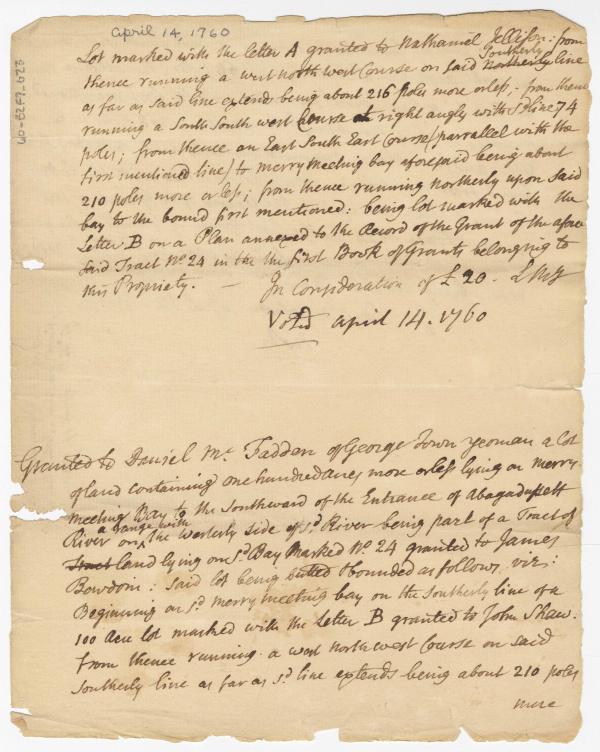 April 14, 1760
Lot marked with the letter A granted to Nathaniel Jellison: from
thence running a west north west Course on said Northerly Southerly line
as far as said line extends being about 216 poles more or less; from thence
running a South South west Course at right angles with Sd line 74
poles; from thence an East South East Course (parrallel with the
first mentioned line) to merry meeting bay aforesaid being about
210 poles more or less; from thence running northerly upon said
bay to the bound first mentioned: being lot marked with the
Letter B on a Plan annexed to the Record of the Grant of the afore
said Tract No 24 in the the first Book of Grants belonging to
this Propriety. — In Consideration of £20.
Voted April 14. 1760
Granted to Daniel Mc Fadden of George Town yeoman a Lot
of land containing one hundred acres more or less lying on merry
meeting Bay to the Southward of the Entrance of Abagadussett
River on a range with the westerly side of sd River being part of a Tract of
Tract land lying on sd Bay Marked No 24 granted to James
Bowdoin: said lot being butted & bounded as follows, viz:
Beginning on sd merry meeting bay on the Southerly line of a
100 Acre lot marked with the Letter B granted to John Shaw.
from thence running a west north west Course on said
Southerly line as far as sd line extends being about 210 poles
more